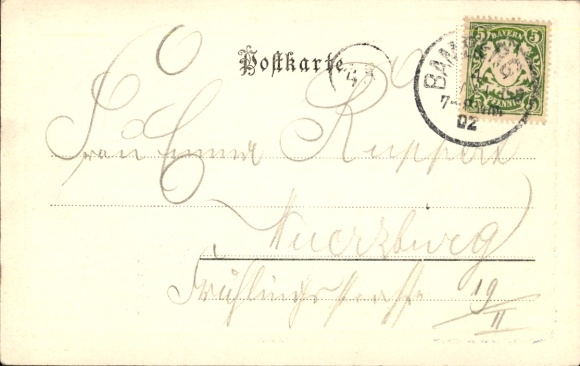 Postkarte.
5 BAYERN 5
PFENNIG
BAM
7-8
02
Frau Emma Ruppert
Wuerzburg
Frühlingsstrasse 19/II